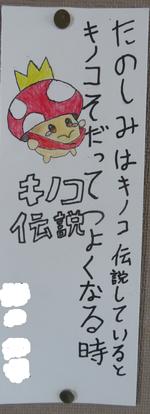 たのしみはキノコ伝説していると
キノコそだってつよくなる時
キノコ
伝説